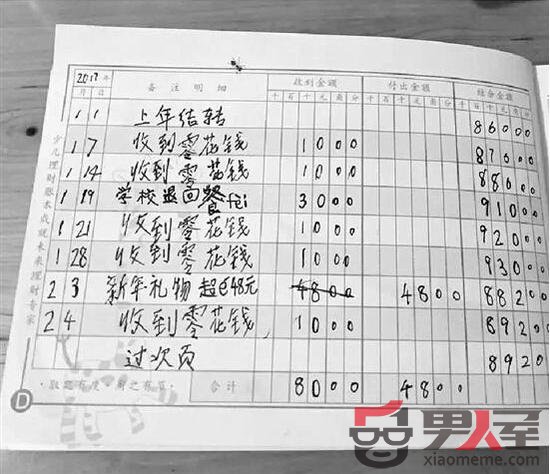 2017年 备注明细 收到金额 付出金额 结余金额
月 日 千 百 十 元 角 分 千 百 十 元 角 分 千 百 十 元 角 分
1 1 上年结转 86000
1 7 收到零花钱 1000 87000
1 14 收到零花钱 1000 88000
1 19 学校退回餐fei 3000 91000
1 21 收到零花钱 1000 92000
1 28 收到零花钱 1000 93000
2 3 新年礼物 超 48元 4800 4800 88200
2 4 收到零花钱, 1000 89200
过次页 8920
取之有度·用之有节 合计 8000 4800
少儿理财账本成就未来理财专家
D
男人窝
xiaomeme.com